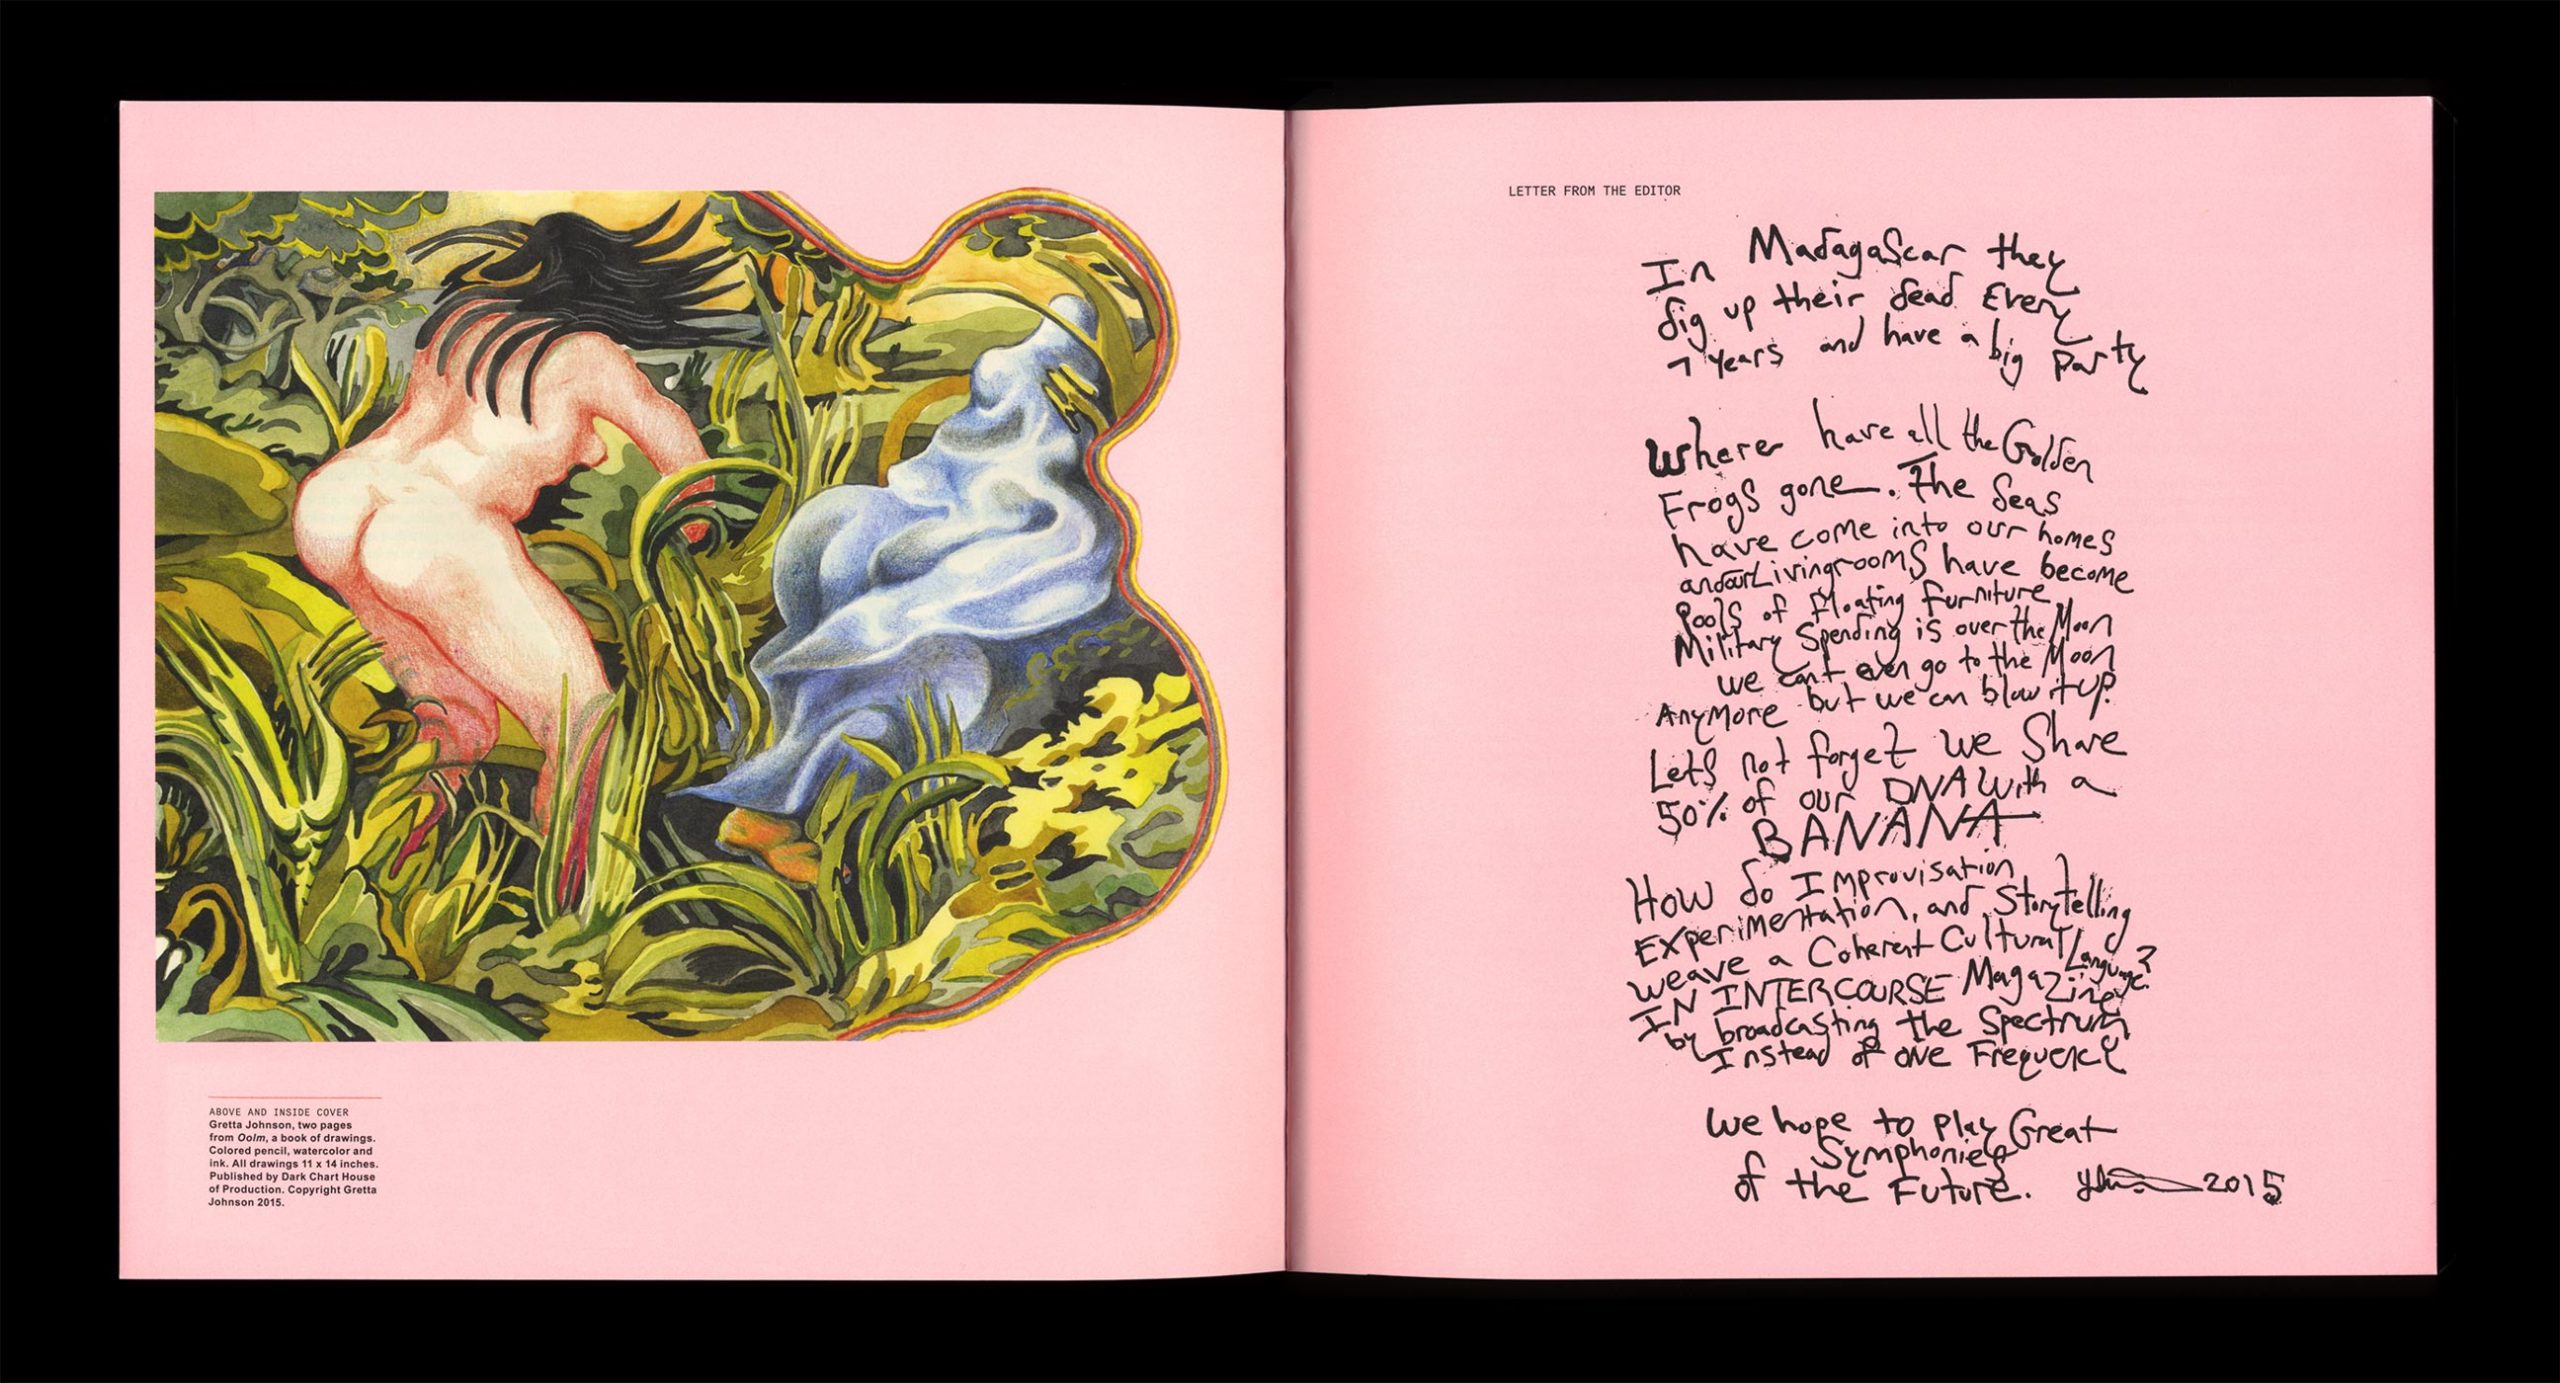 ABOVE AND INSIDE COVER
Gretta Johnson, two pages
from Oolm, a book of drawings.
Colored pencil, watercolor and
ink. All drawings 11 x 14 inches.
Published by Dark Chart House
of Production. Copyright Gretta
Johnson 2015.
LETTER FROM THE EDITOR
In Madagascar they
dig up their dead Every
7 years and have a big Party
Where have all the Golden
Frogs gone. The Seas
have come into our homes
and our Livingrooms have become
Pools of floating Furniture
Military Spending is over the Moon
we can't even go to the Moon
AnyMore but we can blow it up.
Lets not forget we Share
50% of our DNA with a
BANANA
How do Improvisation
Experimentation, and Storytelling
weave a Coherent Cultural Language?
IN INTERCOURSE Magazine
by broadcasting the Spectrum
Instead of one Frequency
We hope to Play Great
Symphonies
of the Future. 2015